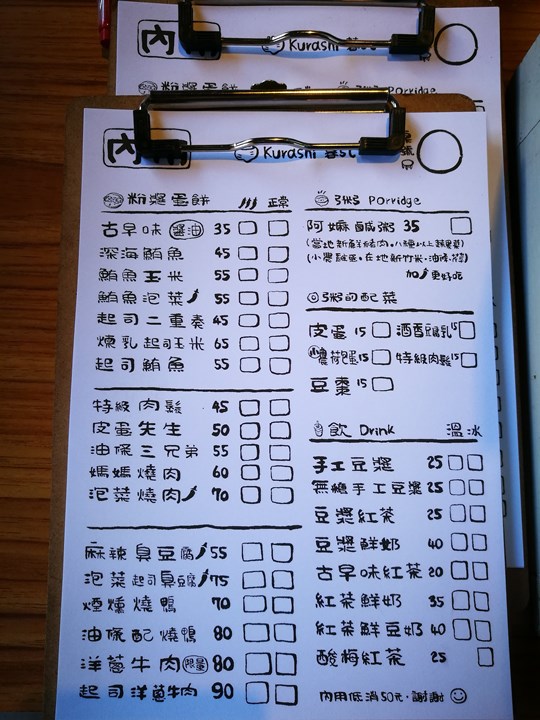 Kurashi
粉漿蛋餅
粥 Porridge
內
Kurashi
粉漿蛋餅 正常
古早味 醬油 35
深海鮪魚 45
鮪魚玉米 55
鮪魚泡菜 55
起司二重奏 45
煉乳起司玉米 65
起司鮪魚 55
特級肉鬆 45
皮蛋先生 50
油條三兄弟 55
媽媽燒肉 60
泡菜燒肉 70
麻辣臭豆腐 55
泡菜起司臭豆腐 75
煙燻燒鴨 70
油條配燒鴨 80
洋蔥牛肉 限量 80
起司洋蔥牛肉 90
粥 Porridge
阿嬤鹹粥 35
(當地新鮮豬肉。八種以上蔬果菇)
(小農鹹蛋。在地新竹米。油條。蔥)
加 更好吃
粥的配菜
皮蛋 15 酒香豆腐乳 15
小農荷包蛋 15 特級肉鬆 15
豆棗 15
飲 Drink 溫 冰
手工豆漿 25
無糖手工豆漿 25
豆漿紅茶 25
豆漿鮮奶 40
古早味紅茶 20
紅茶鮮奶 35
紅茶鮮豆奶 40
酸梅紅茶 25
內用低消50元。謝謝